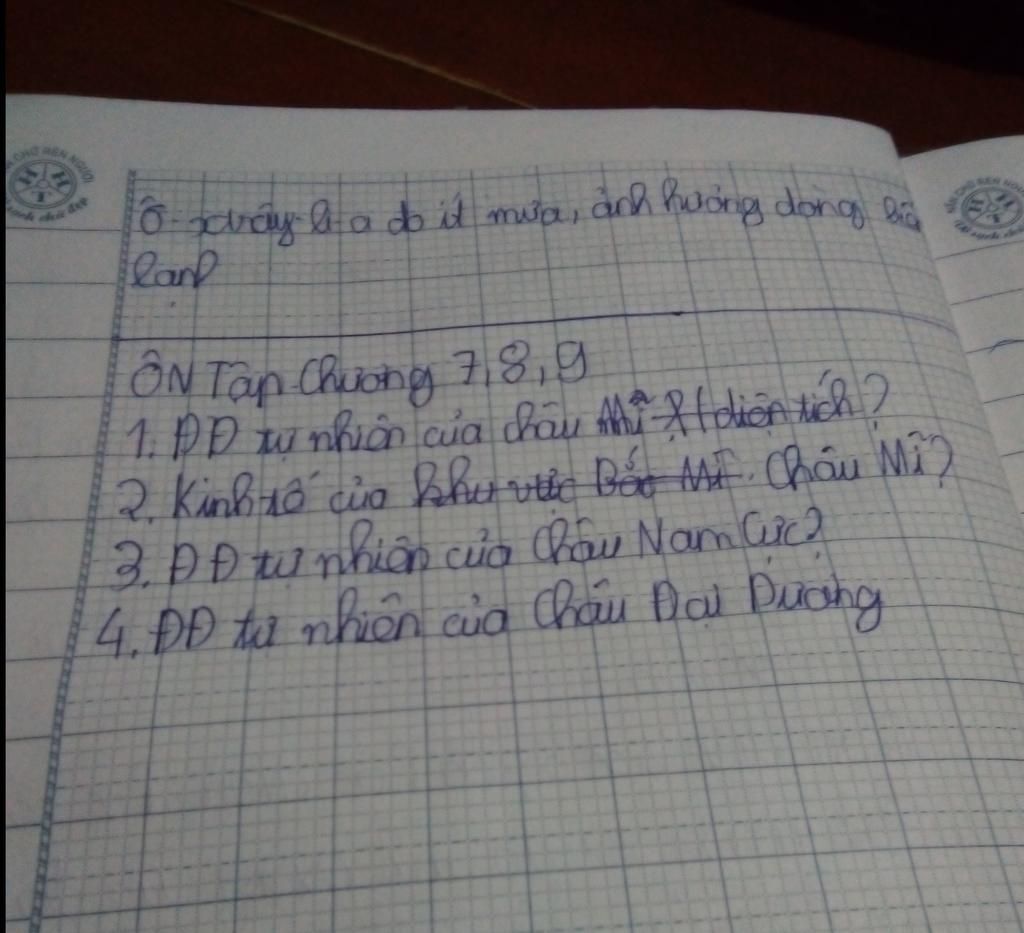 Ô-xtrây-li-a do ít mưa, ảnh hưởng dòng biển
lạnh
ÔN Tập Chương 7, 8, 9
1. ĐĐ tự nhiên của châu Mĩ diện tích?
2. Kinh tế của khu vực Bắc Mĩ. Châu Mĩ?
3. ĐĐ tự nhiên của Châu Nam Cực?
4. ĐĐ tự nhiên của Châu Đại Dương